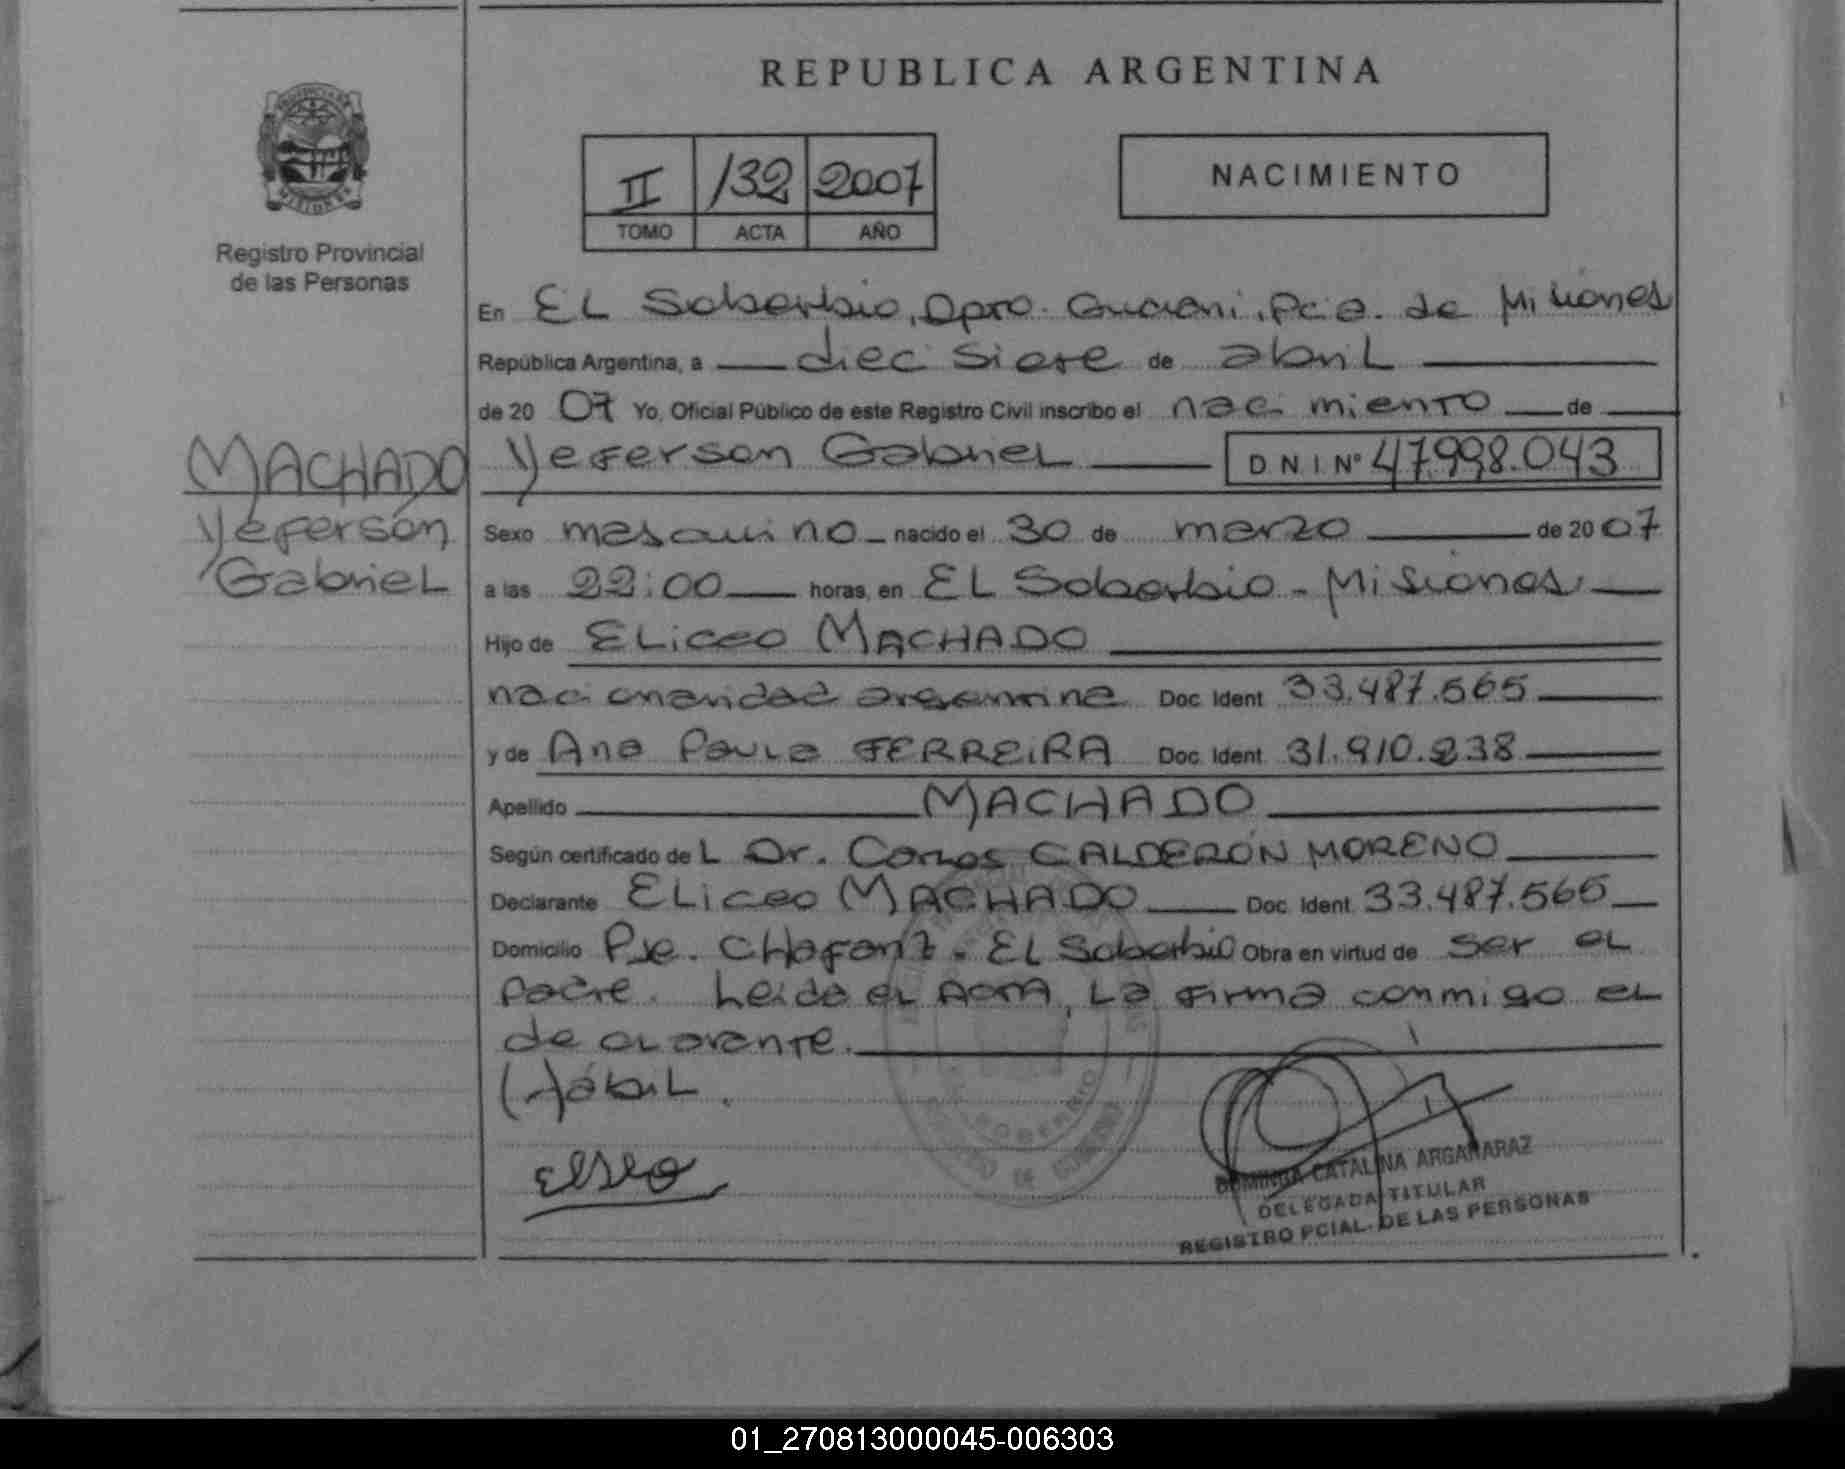 REPUBLICA ARGENTINA
PROVINCIA DE
MISIONES
Registro Provincial
de las Personas
II 132 2007
TOMO ACTA AÑO
NACIMIENTO
En EL Soberbio, Dpto. Guarani, Pcia. de Misiones
República Argentina, a diecisiete de abril
de 20 07 Yo, Oficial Público de este Registro Civil inscribo el nacimiento de
Yeferson Gabriel DNI Nº 47.998.043
MACHADO
Yeferson
Gabriel
Sexo masculino nacido el 30 de marzo de 20 07
a las 22:00 horas, en EL Soberbio - Misiones
Hijo de Eliceo MACHADO
nacionalidad argentina Doc. Ident. 33.487.565
y de Ana Paula FERREIRA Doc. Ident. 31.910.238
Apellido MACHADO
Según certificado de L Dr. Carlos CALDERÓN MORENO
Declarante Eliceo MACHADO Doc. Ident. 33.487.565
Domicilio Pje. EL Soberbio Obra en virtud de ser el
padre. Leida el Acta, La firma conmigo el
declarante.
Hábil.
DOMINGA CATALINA ARGAÑARAZ
DELEGADA TITULAR
REGISTRO PCIAL. DE LAS PERSONAS
01_270813000045-006303